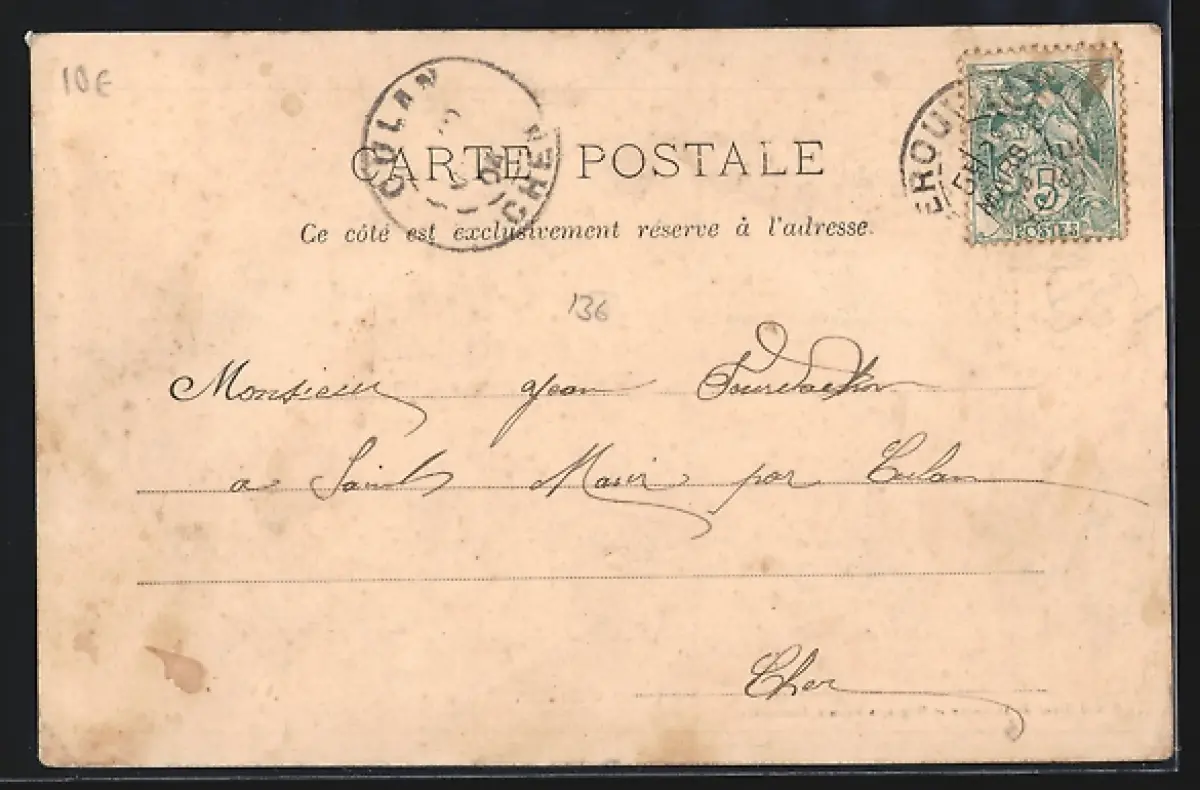 10€
CULAN
04
CHER
CARTE POSTALE
5
POSTES
Ce côté est exclusivement réservé à l'adresse.
136
Monsieur Jean
à Saint Maur par Culan
Cher